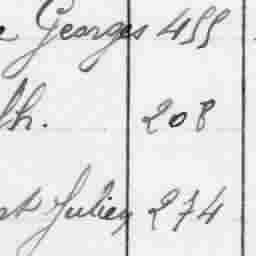 Georges 455
lh. 208
st Julien 274